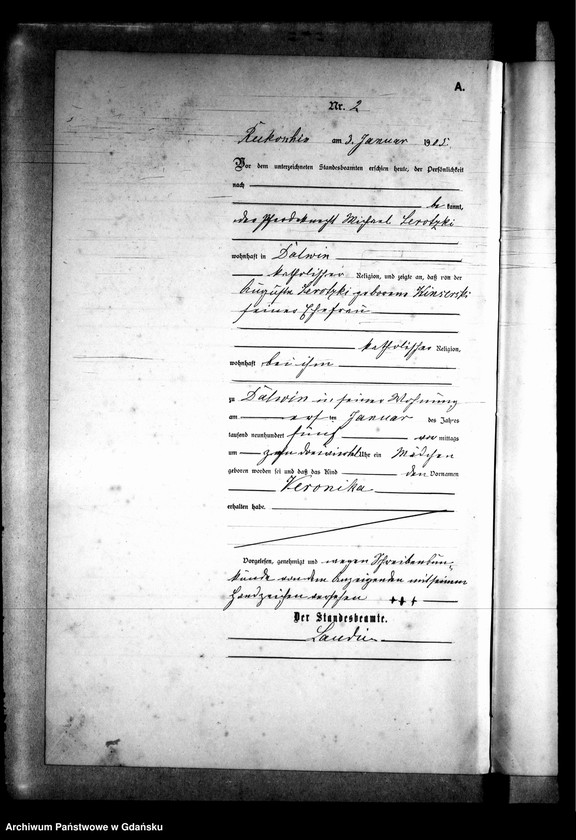 A.
Nr. 2
Rukoschin am 3. Januar 1905
Vor dem unterzeichneten Standesbeamten erschien heute, der Persönlichkeit
nach
be kannt,
der Pferdeknecht Michael Serotzki
wohnhaft in Dalwin
katholischer Religion, und zeigte an, daß von der
Auguste Serotzki geborene
seiner Ehefrau
katholischer Religion,
wohnhaft bei ihm
zu Dalwin in seiner Wohnung
am ersten Januar des Jahres
tausend neunhundert fünf vor mittags
um zehn dreiviertel Uhr ein Mädchen
geboren worden sei und daß das Kind den Vornamen
Veronika
erhalten habe.
Vorgelesen, genehmigt und wegen Schreibensun-
kunde von dem Anzeigenden mit seinem
Handzeichen versehen +++
Der Standesbeamte.
Archiwum Państwowe w Gdańsku